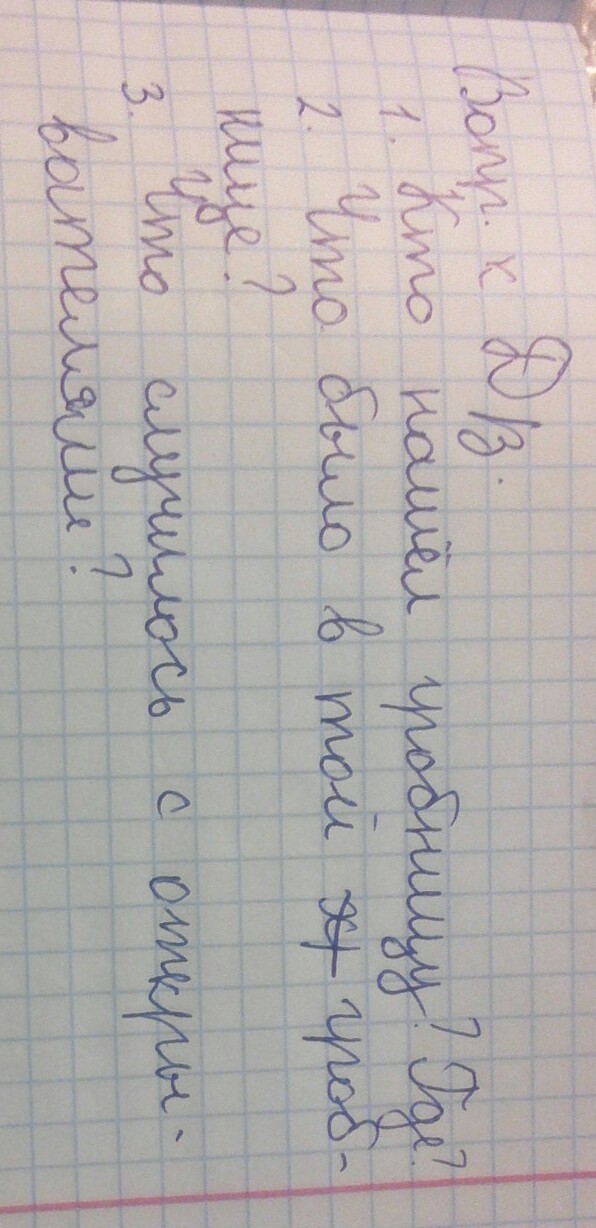 Вопр. к ДЗ.
1. Кто нашёл гробницу? Где?
2. Что было в той гроб-
нице?
3. Что случилось с откры-
вателями?